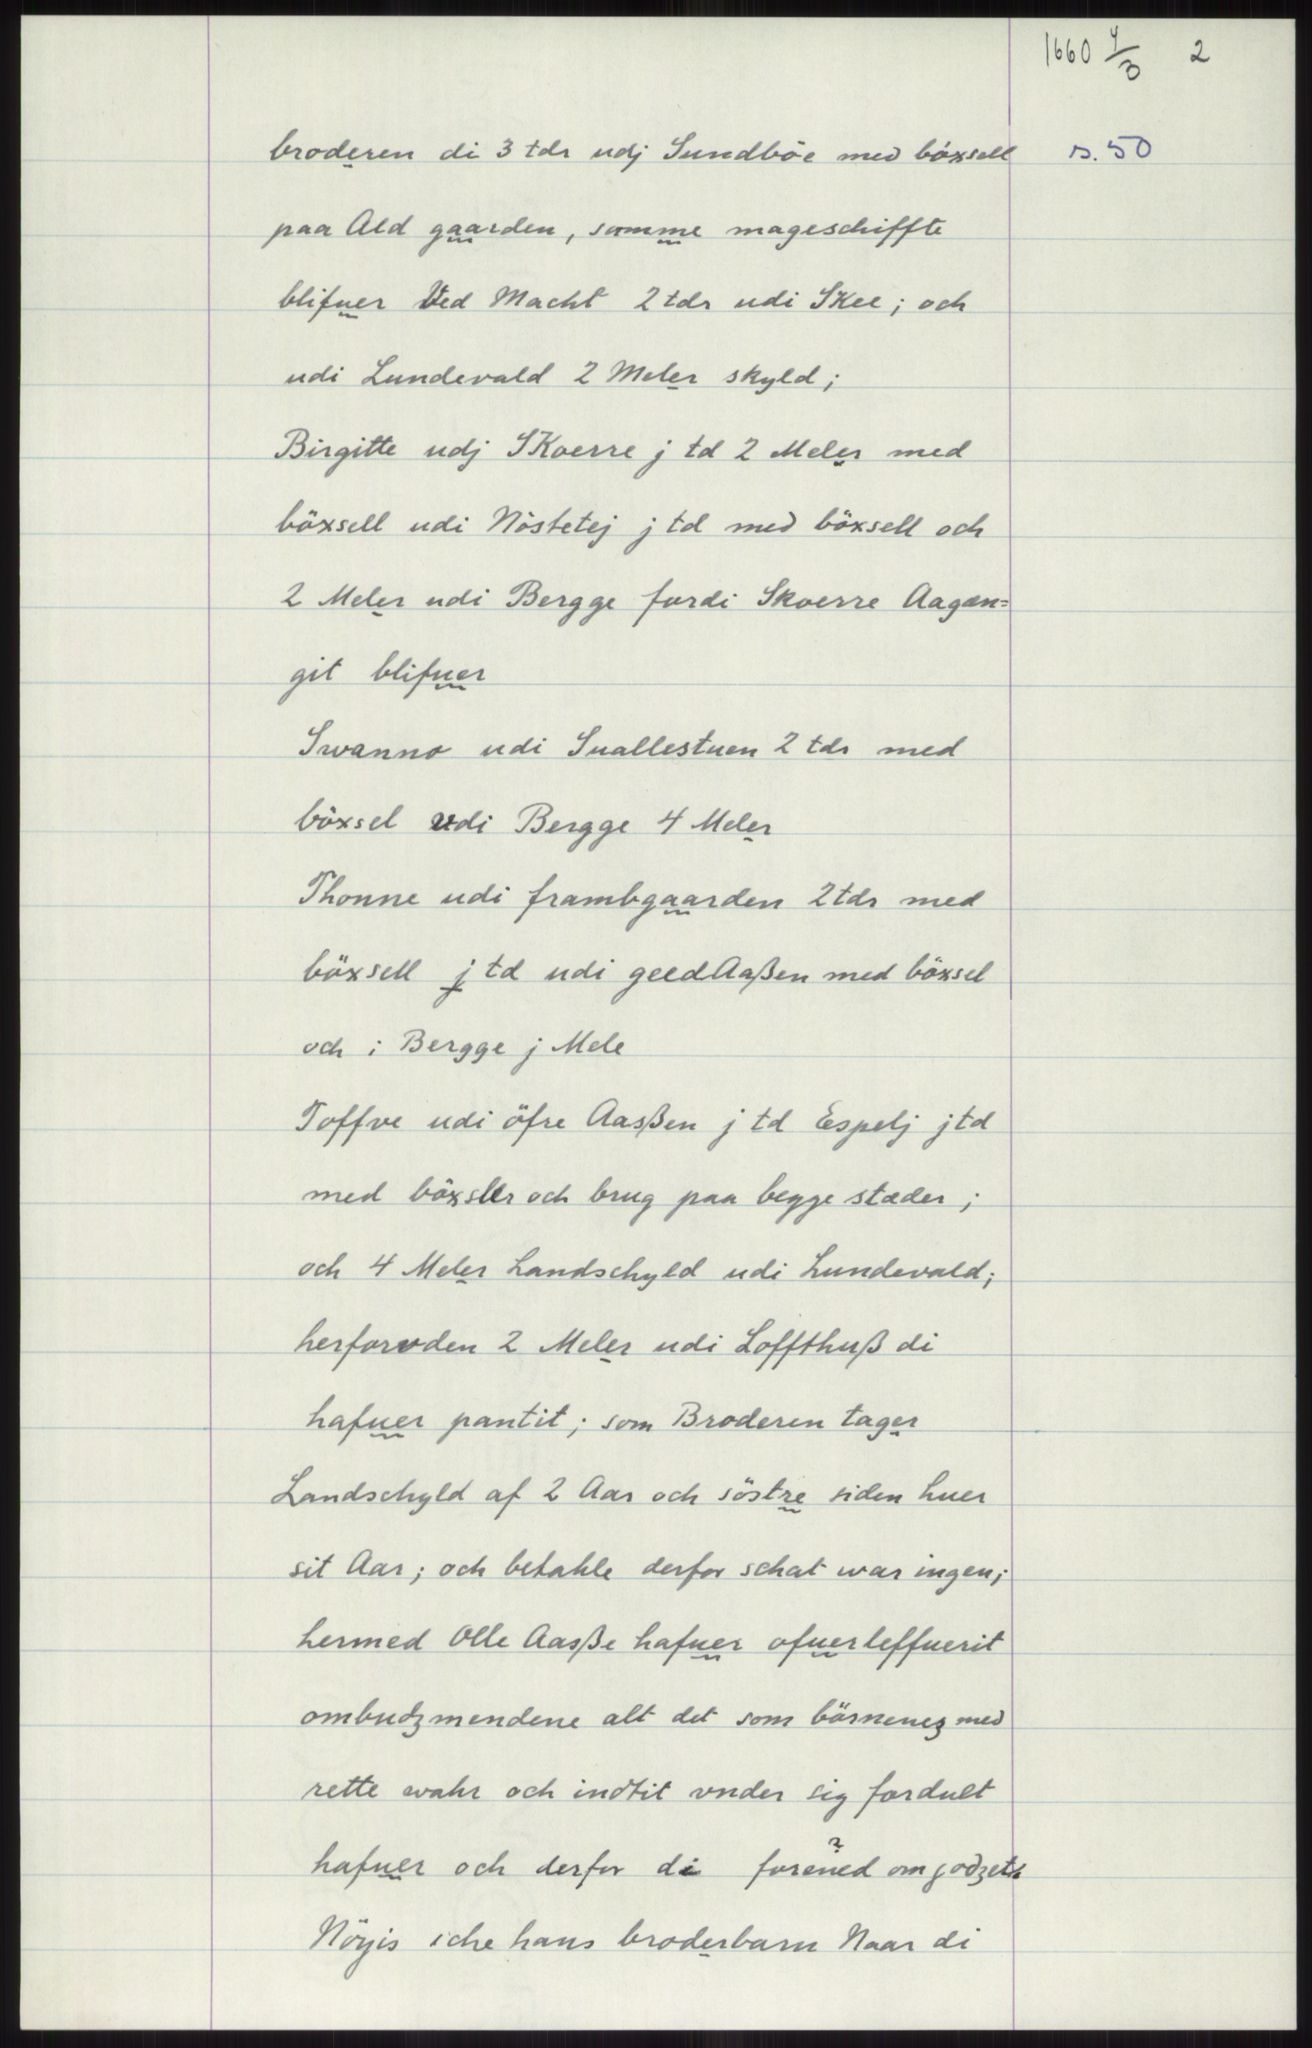 1660 4/3 2
broderen di 3 tdr udj Sundböe med böxsell s. 50
paa Ald gaarden, somme mageschiffte
blifuer Ved Macht 2 tdr udi SKee; och
udi Lundevald 2 Meler skyld;
Birgitte udj SKoerre j td 2 Meler med
böxsell udi Nöstetej j td med böxsell och
2 Meler udi Bergge fordi Skoerre Aagan=
git blifuer
Swanno udi Suallestuen 2 tdr med
böxsel udi Bergge 4 Meler
Thonne udi frambgaarden 2 tdr med
böxsell j td udi geedAaßen med böxsel
och i Bergge j Mele
Toffve udi öfre Aasßen j td Espelj j td
med böxsler och brug paa begge stæder;
och 4 Meler Landschyld udi Lundevald;
herforvden 2 Meler udi Loffthuß di
hafuer pantit; som Broderen tager
Landschyld af 2 Aar och söstre siden huer
sit Aar; och betahle derfor schat war ingen;
hermed Olle Aasße hafuer ofuerleffuerit
ombudzmendene alt det som börnenez med
rette wahr och indtit vnder sig fordult
hafuer och derfor di forened om godzets
?
Nöyis iche hans broderbarn Naar di